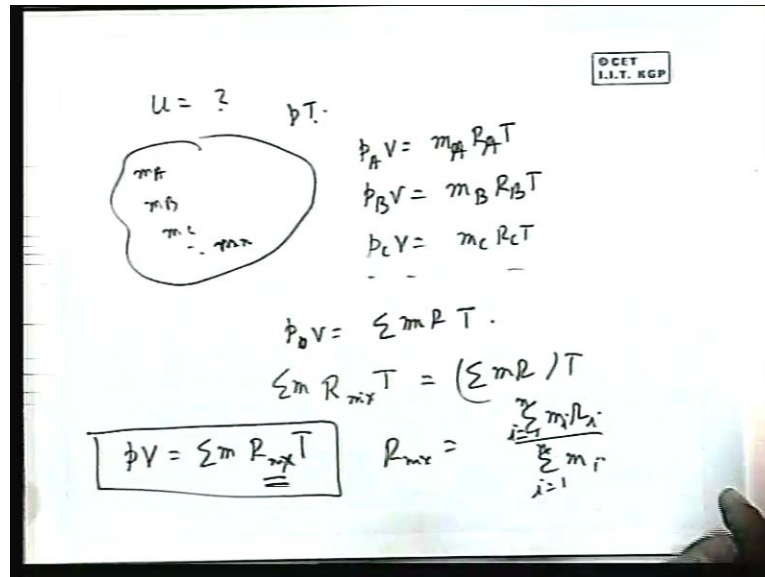 © CET
I.I.T. KGP
u = ? pT.
mA
mB
mc
-. mn
pAV = mARAT
pBV = mBRBT
pcV = mcRcT
- - -
pV = ΣmRT.
ΣmRmixT = (ΣmR)T
pV = ΣmRmixT
Rmix = Σi=1^n miRi / Σi=1^n mi